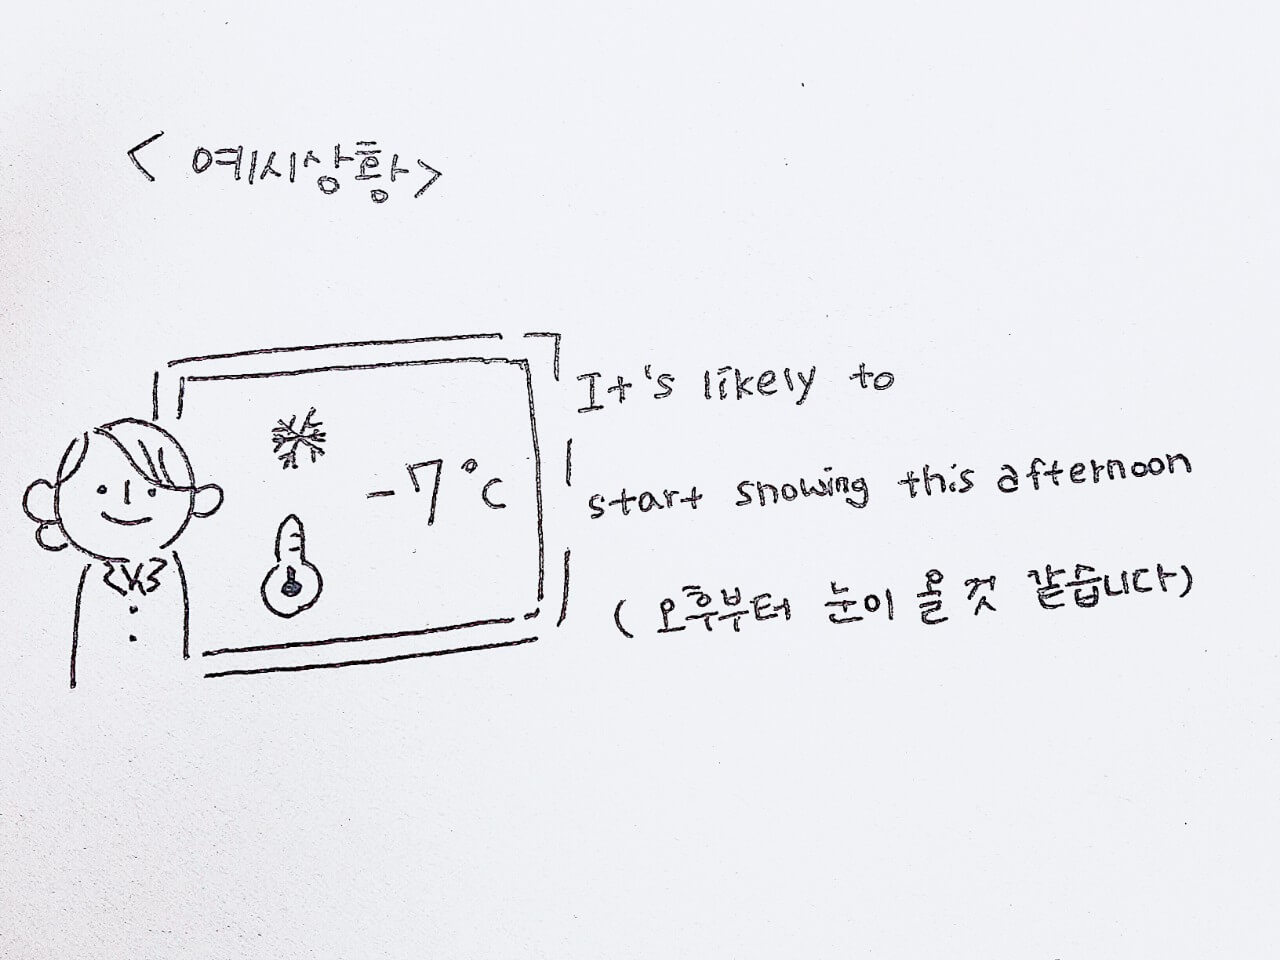 < 예시상황>
-7°C
It's likely to
start snowing this afternoon
( 오후부터 눈이 올 것 같습니다)